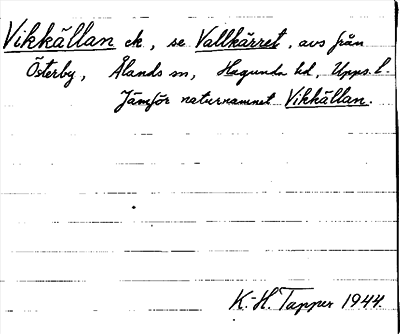 Vikkällan ck, se Vallkärret, avs från
Österby, Ålands sn, Hagunda hd, Upps. l.
Jämför naturnamnet Vikkällan.
K.-H. Tapper 1944.